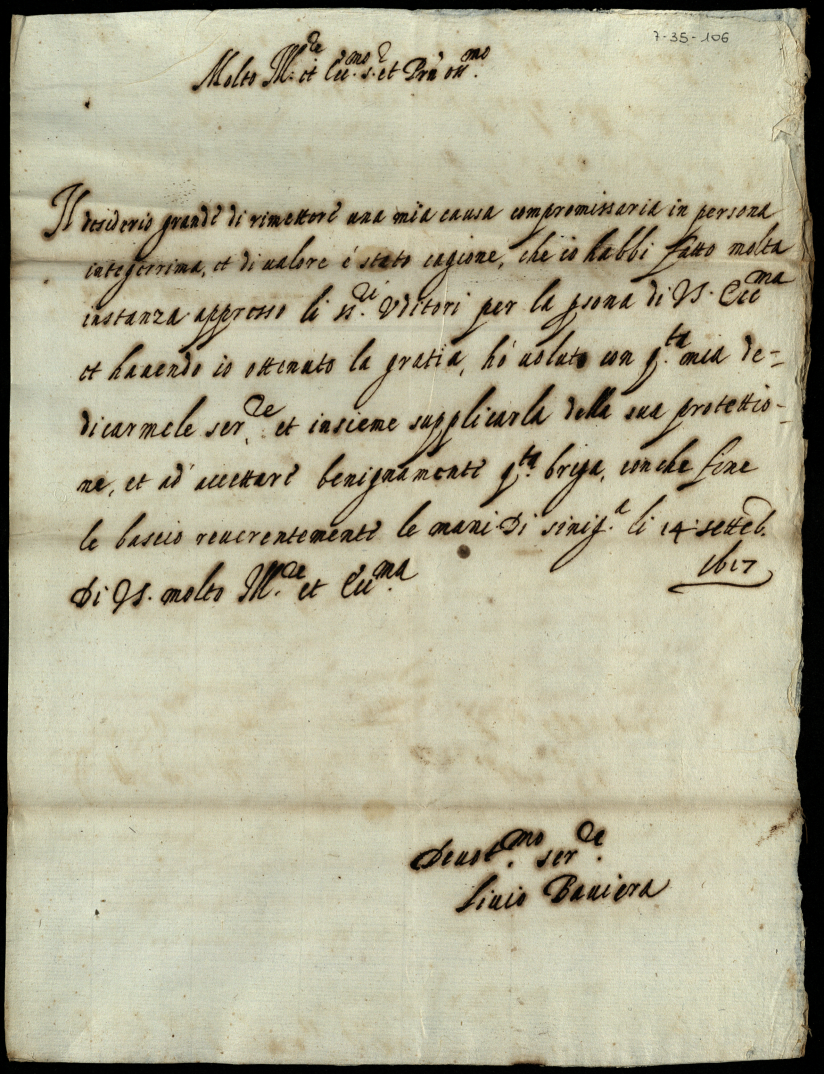 7-35-106
Molto Ill.re et Ecc.mo s.r et Prn̄ oss.mo
Il desiderio grandè di rimetterè una mia causa compromissaria in persona
integerrima, et di ualore é stato cagione, chè io habbi fatto molta
instanza appresso li ss.ri Vditori per la psona di VS. Ecc.ma
et hauendo io ottenuto la gratia, hó uoluto con q.ta mia de=
dicarmele ser.re et insieme supplicarla della sua protettio-
ne, et ad' accettarè benignamentè q.ta briga, conche fine
le bascio reuerentementè le mani Di sinig.a li 14. setteb.
1617
Di VS. molto Ill.re et Ecc.ma
Deuot.mo ser.re
Liuio Bauiera